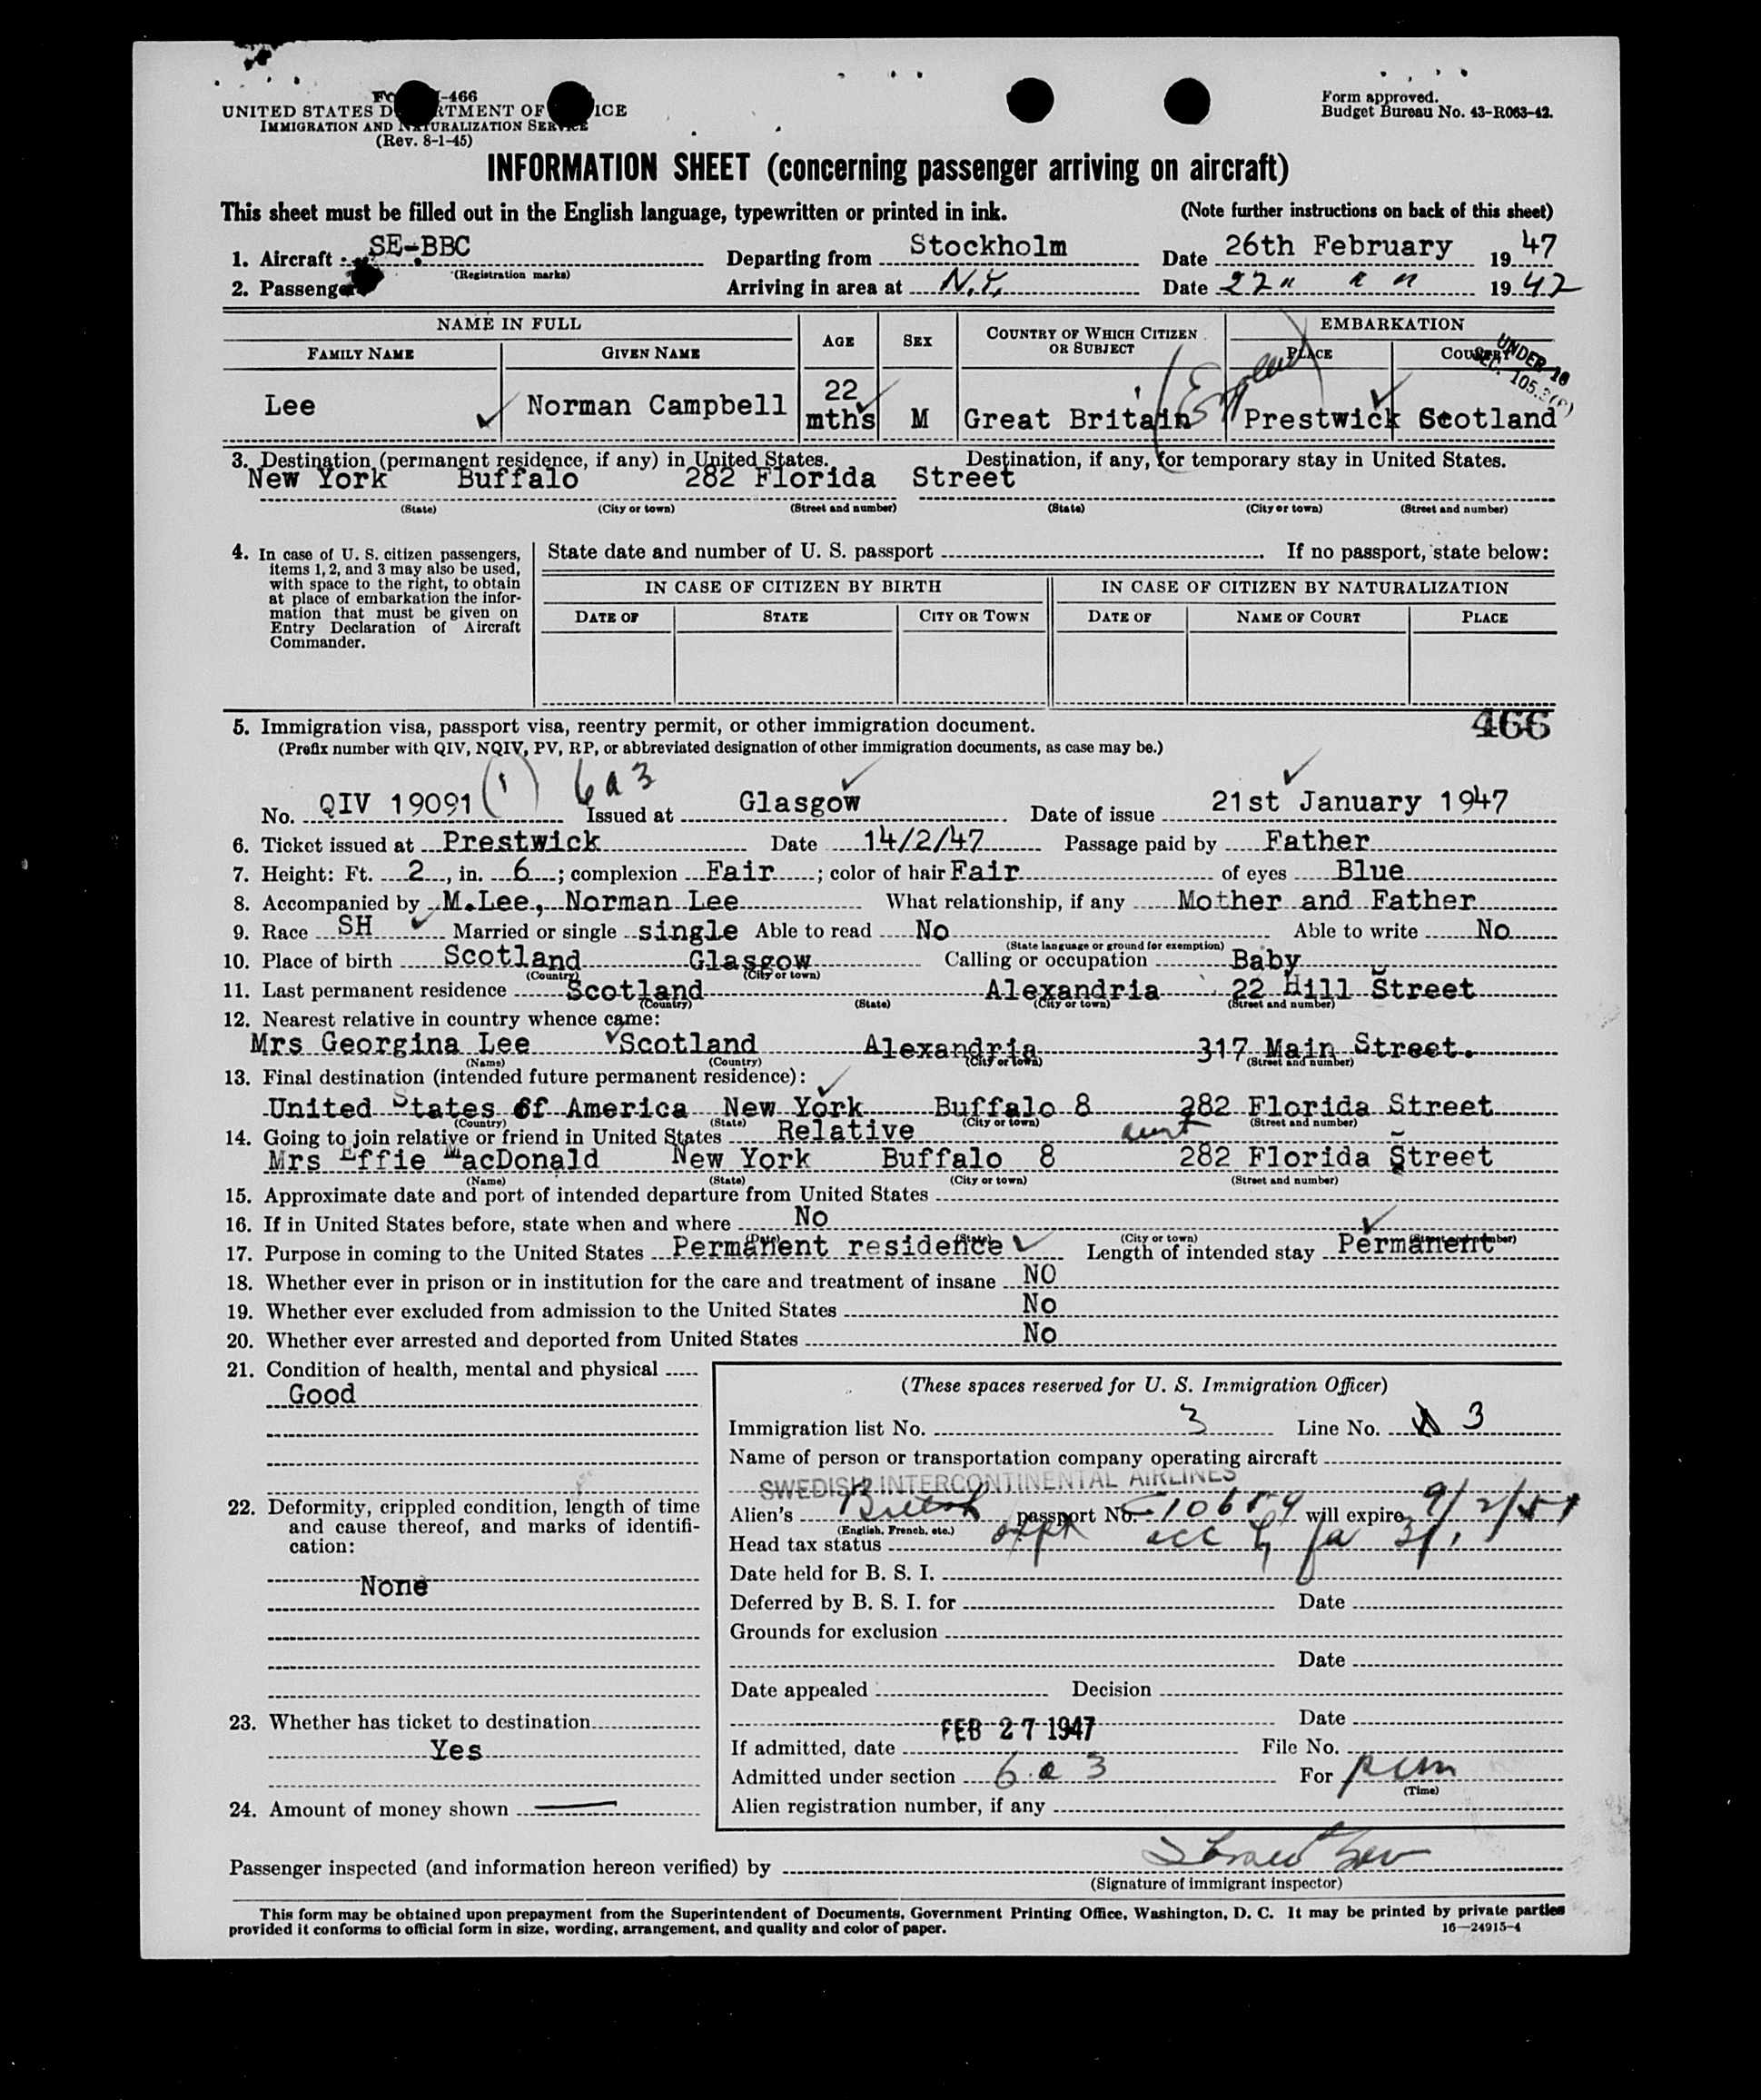 -466
UNITED STATES D RTMENT OF ICE
IMMIGRATION AND NATURALIZATION SERVICE
(Rev. 8-1-45)
Form approved.
Budget Bureau No. 43-R063-42.
INFORMATION SHEET (concerning passenger arriving on aircraft)
This sheet must be filled out in the English language, typewritten or printed in ink. (Note further instructions on back of this sheet)
1. Aircraft SE-BBC Departing from Stockholm Date 26th February 1947
(Registration marks)
2. Passenger Arriving in area at N.Y. Date 27 " " " 1947
NAME IN FULL AGE SEX COUNTRY OF WHICH CITIZEN OR SUBJECT EMBARKATION
FAMILY NAME GIVEN NAME PLACE COUNTRY
UNDER 16
SEC. 105.
(England)
Lee Norman Campbell 22 mths M Great Britain Prestwick Scotland
3. Destination (permanent residence, if any) in United States. Destination, if any, for temporary stay in United States.
New York Buffalo 282 Florida Street
(State) (City or town) (Street and number) (State) (City or town) (Street and number)
4. In case of U. S. citizen passengers,
items 1, 2, and 3 may also be used,
with space to the right, to obtain
at place of embarkation the infor-
mation that must be given on
Entry Declaration of Aircraft
Commander.
State date and number of U. S. passport . If no passport, state below:
IN CASE OF CITIZEN BY BIRTH IN CASE OF CITIZEN BY NATURALIZATION
DATE OF STATE CITY OR TOWN DATE OF NAME OF COURT PLACE
466
5. Immigration visa, passport visa, reentry permit, or other immigration document.
(Prefix number with QIV, NQIV, PV, RP, or abbreviated designation of other immigration documents, as case may be.)
(1) 6 a 3
No. QIV 19091 Issued at Glasgow . Date of issue 21st January 1947
6. Ticket issued at Prestwick Date 14/2/47 Passage paid by Father
7. Height: Ft. 2, in. 6; complexion Fair; color of hair Fair of eyes Blue
8. Accompanied by M.Lee, Norman Lee What relationship, if any Mother and Father
9. Race SH Married or single single Able to read No Able to write No
(State language or ground for exemption)
10. Place of birth Scotland Glasgow Calling or occupation Baby
(Country) (City or town)
11. Last permanent residence Scotland Alexandria 22 Hill Street
(Country) (State) (City or town) (Street and number)
12. Nearest relative in country whence came:
Mrs Georgina Lee Scotland Alexandria 317 Main Street.
(Name) (Country) (City or town) (Street and number)
13. Final destination (intended future permanent residence):
United States of America New York Buffalo 8 282 Florida Street
(Country) (State) (City or town) (Street and number)
14. Going to join relative or friend in United States Relative aunt
Mrs Effie MacDonald New York Buffalo 8 282 Florida Street
(Name) (State) (City or town) (Street and number)
15. Approximate date and port of intended departure from United States
16. If in United States before, state when and where No
(Date) (State) (City or town) (Street and number)
17. Purpose in coming to the United States Permanent residence Length of intended stay Permanent
18. Whether ever in prison or in institution for the care and treatment of insane NO
19. Whether ever excluded from admission to the United States No
20. Whether ever arrested and deported from United States No
21. Condition of health, mental and physical
Good
22. Deformity, crippled condition, length of time
and cause thereof, and marks of identifi-
cation:
None
23. Whether has ticket to destination
Yes
24. Amount of money shown
(These spaces reserved for U. S. Immigration Officer)
Immigration list No. 3 Line No. 3
Name of person or transportation company operating aircraft
SWEDISH INTERCONTINENTAL AIRLINES
Alien's British passport No. will expire
(English, French, etc.)
Head tax status
Date held for B. S. I.
Deferred by B. S. I. for Date
Grounds for exclusion
Date
Date appealed Decision
Date
If admitted, date FEB 27 1947 File No.
Admitted under section 6 a 3 For perm
(Time)
Alien registration number, if any
Passenger inspected (and information hereon verified) by
(Signature of immigrant inspector)
This form may be obtained upon prepayment from the Superintendent of Documents, Government Printing Office, Washington, D. C. It may be printed by private parties
provided it conforms to official form in size, wording, arrangement, and quality and color of paper.
16—24915-4